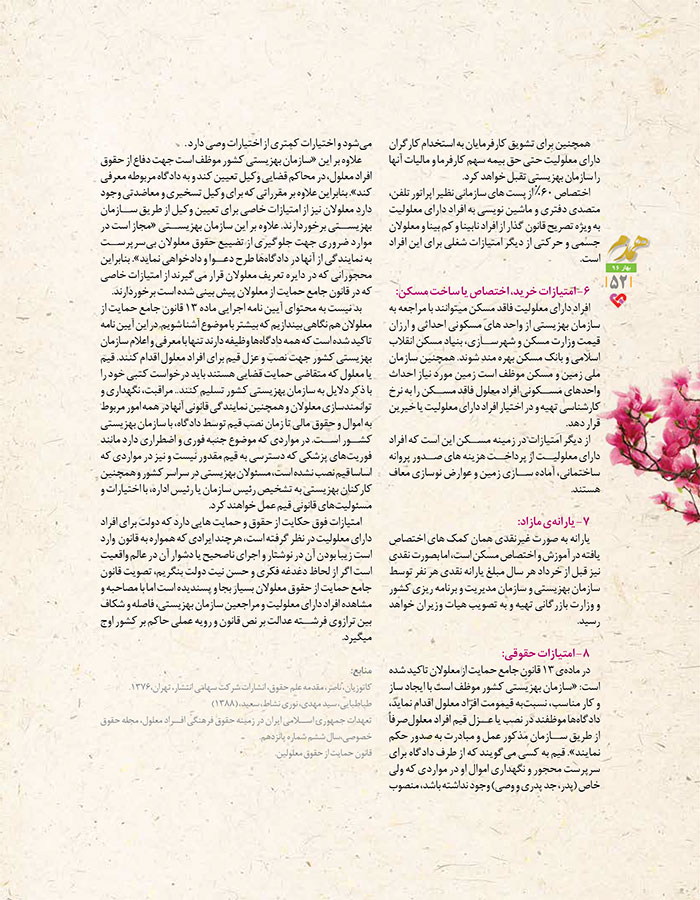 همچنین برای تشویق کارفرمایان به استخدام کارگران
دارای معلولیت حتی حق بیمه سهم کارفرما و مالیات آنها
را سازمان بهزیستی تقبل خواهد کرد.
اختصاص ۶۰٪ از پست های سازمانی نظیر اپراتور تلفن،
متصدی دفتری و ماشین نویسی به افراد دارای معلولیت
به ویژه تصریح قانون گذار از افراد نابینا و کم بینا و معلولان
جسمی و حرکتی از دیگر امتیازات شغلی برای این افراد
است.
۶- امتیازات خرید، اختصاص یا ساخت مسکن:
افراد دارای معلولیت فاقد مسکن میتوانند با مراجعه به
سازمان بهزیستی از واحد های مسکونی احداثی و ارزان
قیمت وزارت مسکن و شهرسازی، بنیاد مسکن انقلاب
اسلامی و بانک مسکن بهره مند شوند. همچنین سازمان
ملی زمین و مسکن موظف است زمین مورد نیاز احداث
واحدهای مسکونی افراد معلول فاقد مسکن را به نرخ
کارشناسی تهیه و در اختیار افراد دارای معلولیت یا خیرین
قرار دهد.
از دیگر امتیازات در زمینه مسکن این است که افراد
دارای معلولیت از پرداخت هزینه های صدور پروانه
ساختمانی، آماده سازی زمین و عوارض نوسازی معاف
هستند.
۷- یارانه‌ی مازاد:
یارانه به صورت غیرنقدی همان کمک های اختصاص
یافته در آموزش و اختصاص مسکن است، اما بصورت نقدی
نیز قبل از خرداد هر سال مبلغ یارانه نقدی هر نفر توسط
سازمان بهزیستی و سازمان مدیریت و برنامه ریزی کشور
و وزارت بازرگانی تهیه و به تصویب هیات وزیران خواهد
رسید.
۸- امتیازات حقوقی:
در ماده‌ی ۱۳ قانون جامع حمایت از معلولان تاکید شده
است: «سازمان بهزیستی کشور موظف است با ایجاد ساز
و کار مناسب، نسبت به قیمومت افراد معلول اقدام نماید،
دادگاه‌ها موظفند در نصب یا عزل قیم افراد معلول صرفاً
از طریق سازمان مذکور عمل و مبادرت به صدور حکم
نمایند». قیم به کسی می گویند که از طرف دادگاه برای
سرپرست محجور و نگهداری اموال او در مواردی که ولی
خاص (پدر، جد پدری و وصی) وجود نداشته باشد، منصوب
می‌شود و اختیارات کمتری از اختیارات وصی دارد.
علاوه بر این «سازمان بهزیستی کشور موظف است جهت دفاع از حقوق
افراد معلول، در محاکم قضایی وکیل تعیین کند و به دادگاه مربوطه معرفی
کند». بنابراین علاوه بر مقرراتی که برای وکیل تسخیری و معاضدتی وجود
دارد معلولان نیز از امتیازات خاصی برای تعیین وکیل از طریق سازمان
بهزیستی برخوردارند. علاوه بر این سازمان بهزیستی «مجاز است در
موارد ضروری جهت جلوگیری از تضییع حقوق معلولان بی‌سرپرست
به نمایندگی از آنها در دادگاه‌ها طرح دعوا و دادخواهی نماید». بنابراین
محجورانی که در دایره تعریف معلولان قرار می گیرند از امتیازات خاصی
که در قانون جامع حمایت از معلولان پیش بینی شده است برخوردارند.
بد نیست به محتوای آیین نامه اجرایی ماده ۱۳ قانون جامع حمایت از
معلولان هم نگاهی بیندازیم که بیشتر با موضوع آشنا شویم. در این آیین نامه
تاکید شده است که همه دادگاه‌ها وظیفه دارند تنها با معرفی و اعلام سازمان
بهزیستی کشور جهت نصب و عزل قیم برای افراد معلول اقدام کنند. قیم
یا معلول که متقاضی حمایت قضایی هستند باید درخواست کتبی خود را
با ذکر دلایل به سازمان بهزیستی کشور تسلیم کنند.. مراقبت، نگهداری و
توانمندسازی معلولان و همچنین نمایندگی قانونی آنها در همه امور مربوط
به اموال و حقوق مالی تا زمان نصب قیم توسط دادگاه، با سازمان بهزیستی
کشور است. در مواردی که موضوع جنبه فوری و اضطراری دارد مانند
فوریت‌های پزشکی که دسترسی به قیم مقدور نیست و نیز در مواردی که
اساسا قیم نصب نشده است، مسئولان بهزیستی در سراسر کشور و همچنین
کارکنان بهزیستی به تشخیص رئیس سازمان یا رئیس اداره، با اختیارات و
مسئولیت‌های قانونی قیم عمل خواهند کرد.
امتیازات فوق حکایت از حقوق و حمایت هایی دارد که دولت برای افراد
دارای معلولیت در نظر گرفته است، هرچند ایرادی که همواره به قانون وارد
است زیبا بودن آن در نوشتار و اجرای ناصحیح یا دشوار آن در عالم واقعیت
است اگر از لحاظ دغدغه فکری و حسن نیت دولت بنگریم، تصویت قانون
جامع حمایت از حقوق معلولان بسیار بجا و پسندیده است اما با مصاحبه و
مشاهده افراد دارای معلولیت و مراجعین سازمان بهزیستی، فاصله و شکاف
بین ترازوی فرشته عدالت بر نص قانون و رویه عملی حاکم بر کشور اوج
میگیرد.
منابع:
کاتوزیان، ناصر، مقدمه علم حقوق، انشارات شرکت سهامی انتشار، تهران، ۱۳۷۶.
طباطبایی، سید مهدی، نوری نشاط، سعید، (۱۳۸۸)
تعهدات جمهوری اسلامی ایران در زمینه حقوق فرهنگی افراد معلول، مجله حقوق
خصوصی، سال ششم شماره پانزدهم.
قانون حمایت از حقوق معلولین.
همدم
بهار ۹۶
۵۲